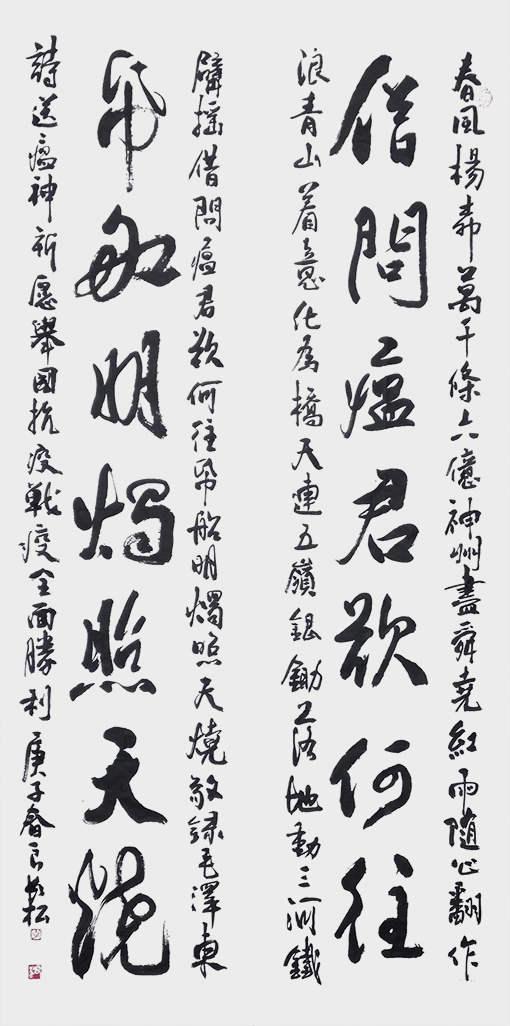 春風楊柳萬千條六億神州盡舜堯紅雨隨心翻作
借問瘟君欲何往
浪青山着意化為橋天連五嶺銀鋤落地動三河鐵
臂搖借問瘟君欲何往帋船明燭照天燒敬錄毛澤東
帋船明燭照天燒
詩送瘟神祈愿舉國抗疫戰疫全面勝利庚子春松